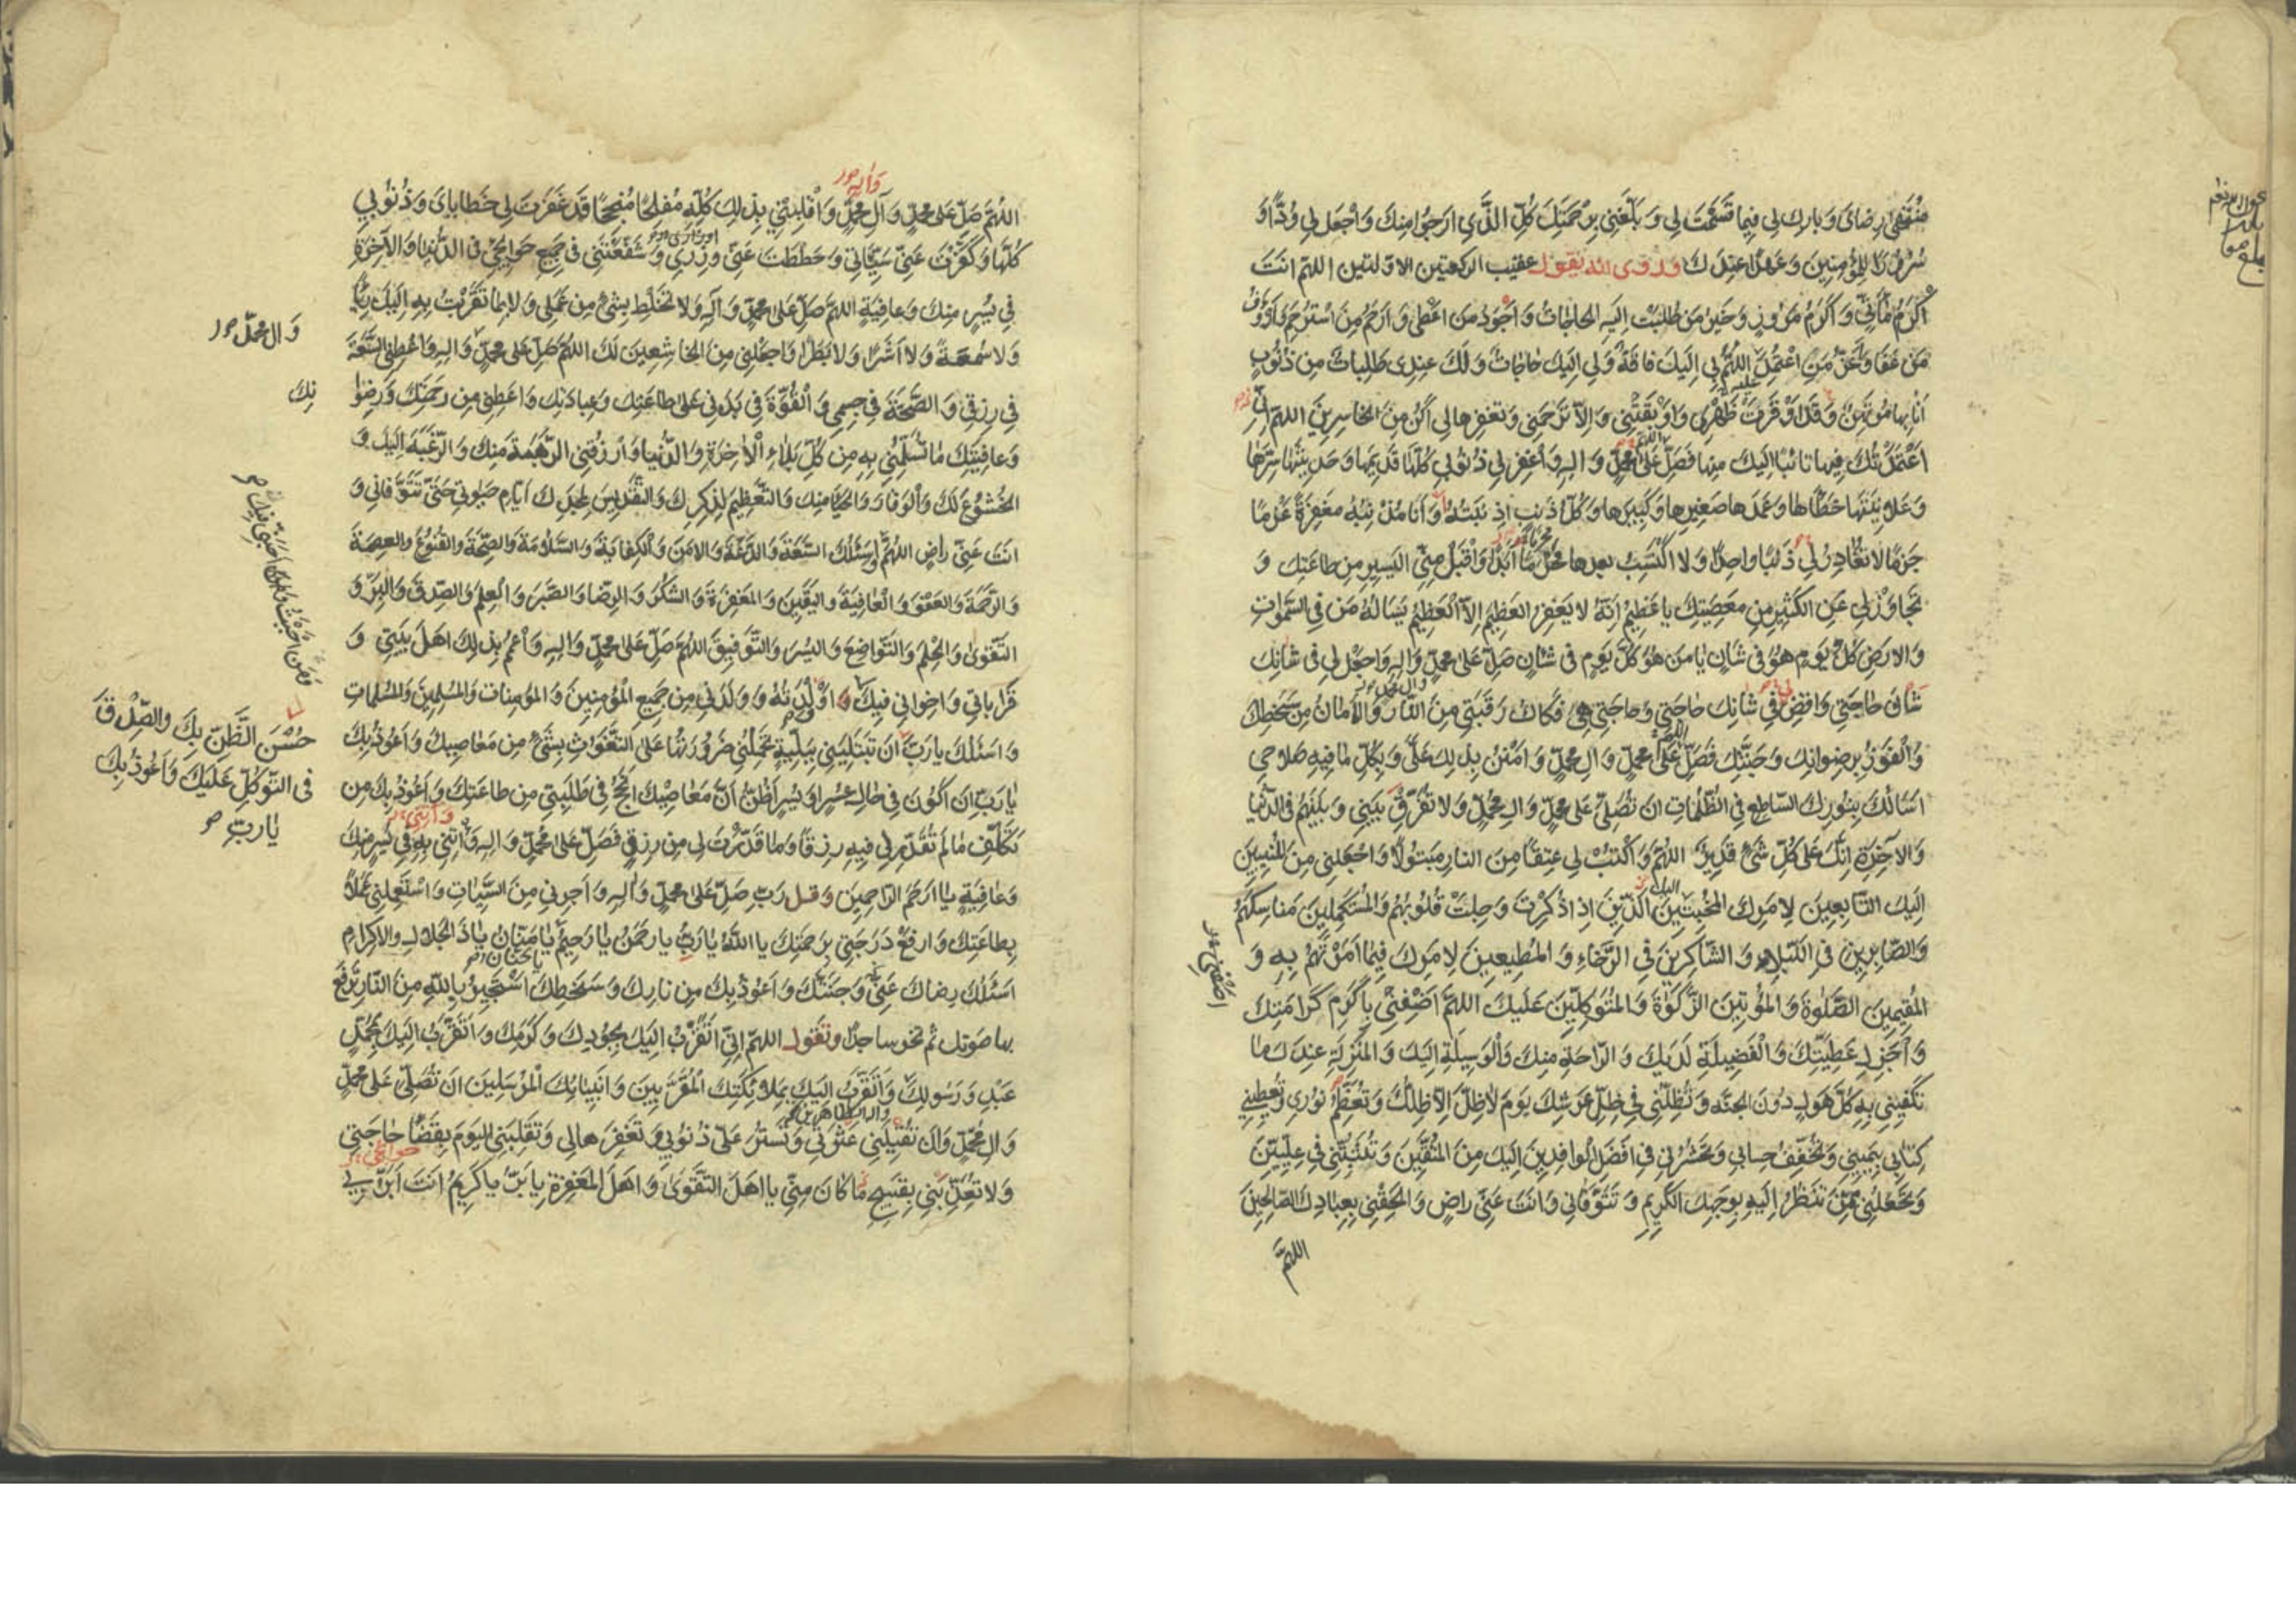 مُنْقَضَى رِضائِى وَ بارِك لِى فِيما قَسَمْتَ لِى وَ بَلِّغْنِى بِرَحْمَتِكَ كُلَّ الَّذِى اَرجُوا مِنكَ وَ اجْعَل لِى وُدًّا وَ
سُرُورًا لِلمُؤمِنِينَ وَ عَهْدًا عِنْدَكَ وقد روى انه يقول عقيب الركعتين الاولتين اللهم انتَ
اَكْرَمُ مَأتِىٍّ وَ اَكْرَمُ مَزُورٍ وَ خَيْرُ مَنْ طُلِبَتْ اِلَيهِ الحاجاتُ وَ اَجْوَدُ مَنْ اَعْطى وَ اَرْحَمُ مَنِ اسْتُرْحِمَ وَ اَرْؤَفُ
مَن عَفَا وَ اَعَزُّ مَنِ اعْتُمِدَ اللهُمَّ بِى اِلَيكَ فاقَةٌ وَ لِى اِلَيكَ حاجاتٌ وَ لَكَ عِنْدِى طَلِباتٌ مِن ذُنُوبٍ
اَنَا بِها مُرْتَهَنٌ وَ قَد اَوْقَرَتْ ظَهْرِى وَ اَوْبَقَتْنِى وَ اِلَّا تَرْحَمْنِى وَ تَغفِرها لِى اَكُنْ مِنَ الخاسِرِينَ اللهم اِنِّى
اعْتَمَدْتُكَ فِيها تائِبًا اِلَيكَ مِنها فَصَلِّ عَلَى مُحمدٍ وَ الِهِ وَ اغْفِر لِى ذُنُوبِى كُلَّهَا قَدِيمَها وَ حَدِيثَها سِرَّها
وَ عَلَانِيَتَها خَطَأَها وَ عَمْدَها صَغِيرَها وَ كَبِيرَها وَ كُلَّ ذَنبٍ اذْنَبْتُهُ وَ اَنا مُذْنِبُهُ مَغفِرَةً عَزْمًا
جَزمًا لا تُغادِرُ لِى ذَنبًا واحِدًا وَ لا اَكْتَسِبُ بعدها مُحَرَّمًا اَبَدًا وَ اقْبَلْ مِنِّى اليَسِيرَ مِن طاعَتِكَ وَ
تَجاوَزْ لِى عَنِ الكَثِيرِ مِن مَعصِيَتِكَ يا عَظِيمُ اِنَّهُ لا يَغفِرُ العَظِيمَ اِلَّا العَظِيمُ يَسْأَلُهُ مَن فِى السَّمواتِ
وَ الارضِ كُلَّ يَومٍ هُوَ فِى شَانٍ يا مَن هُوَ كُلَّ يَومٍ فى شَانٍ صَلِّ عَلى محمدٍ وَ الِهِ وَ اجعَلْ لِى فى شَانِكَ
شَانَ حاجَتِى وَ اقْضِ فِى شانِكَ حاجَتِى وَ حاجَتِى هِىَ فَكَاكُ رَقَبَتِى مِنَ النَّارِ وَ الاَمانُ مِن سَخَطِكَ
وَ الْفَوْزُ بِرِضوانِكَ وَ جَنَّتِكَ فَصَلِّ عَلَى محمدٍ وَ الِ محمدٍ وَ امْنُنْ بِذلِكَ عَلَىَّ وَ بِكُلِّ ما فِيهِ صَلاحِى
اَسْاَلُكَ بِنُورِكَ السّاطِعِ فِى الظُّلُماتِ ان تُصَلِّىَ عَلى محمدٍ وَ الِ محمدٍ وَ لا تُفَرِّقْ بَينِى وَ بَينَهُم فِى الدُّنيا
وَ الآخِرَةِ اِنَّكَ عَلى كُلِّ شَىءٍ قَدِيرٌ اللهُمَّ وَ اكْتُبْ لِى عِتقًا مِنَ النارِ مَبتُولًا وَ اجعَلنِى مِنَ المُنِيبِينَ
اِلَيكَ التّابِعِينَ لِاَمرِكَ المُخْبِتِينَ الَّذِينَ اِذا ذُكِرْتَ وَجِلَتْ قُلُوبُهُم وَ المُسْتَكْمِلِينَ مَناسِكَهُمْ
وَ الصّابِرِينَ فِى البَلاءِ وَ الشّاكِرِينَ فِى الرَّخاءِ وَ المُطِيعِينَ لِاَمرِكَ فِيما اَمَرْتَهُم بِهِ وَ
المُقِيمِينَ الصَّلوةَ وَ المُؤتِينَ الزَّكوةَ وَ المُتَوَكِّلِينَ عَلَيكَ اللهمَّ اَضِفْنِى بِاَكْرَمِ كَرَامَتِكَ
وَ اَجْزَلِ عَطِيَّتِكَ وَ الْفَضِيلَةِ لَدَيكَ وَ الرّاحَةِ مِنكَ وَ الْوَسِيلَةِ اِلَيكَ وَ المَنزِلَةِ عِندَكَ ما
تَكْفِينِى بِهِ كُلَّ هَولٍ دُونَ الجنّه وَ تُظِلُّنِى فِى ظِلِّ عَرشِكَ يَومَ لا ظِلَّ اِلّا ظِلُّكَ وَ تُعَظِّمُ نُورِى وَ تُعطِينِى
كِتابِى بِيَمِينِى وَ تُخَفِّفُ حِسابِى وَ تَحشُرُنِى فِى اَفضَلِ الوافِدِينَ اِلَيكَ مِنَ المُتَّقِينَ وَ تُثَبِّتُنِى فِى عِلِّيِّينَ
وَ تَجْعَلُنِى مِمَّن تَنظُرُ اِلَيهِ بِوَجهِكَ الكَرِيمِ وَ تَتَوَفّانِى وَ اَنتَ عَنِّى راضٍ وَ الحِقْنِى بِعِبادِكَ الصّالِحِينَ
اللهمَّ
اَضِفْنِى
وَ آلِهِ
اللهُمَّ صَلِّ عَلى محمدٍ وَ آلِ محمدٍ وَ اقْلِبْنِى بِذلِكَ كُلِّهِ مُفلِحًا مُنْجِحًا قَد غَفَرْتَ لِى خَطاياىَ وَ ذُنُوبِى
كُلَّها وَ كَفَّرْتَ عَنِّى سَيِّئاتِى وَ حَطَطْتَ عَنِّى وِزْرِى وَ شَفَّعْتَنِى فى جَمِيعِ حَوائِجِى فى الدُّنيا وَ الآخِرَةِ
فِى يُسْرٍ مِنكَ وَ عافِيَةٍ اللهمَّ صَلِّ عَلى محمدٍ وَ آلِهِ وَ لا تَخْلِطْ بِشَىءٍ مِن عَمَلِى وَ لا بِما تَقَرَّبْتُ بِهِ اِلَيكَ رِياءً
وَ لا سُمعَةً وَ لا اَشَرًا وَ لا بَطَرًا وَ اجعَلنِى مِنَ الخاشِعِينَ لَكَ اللهُمَّ صَلِّ عَلى محمدٍ وَ الِهِ وَ اَعطِنِى السَّعَةَ
وَ ال محمّد
فِى رِزقِى وَ الصِّحَّةَ فِى جِسمِى وَ الْقُوَّةَ فِى بَدَنِى عَلى طاعَتِكَ وَ عِبادَتِكَ وَ اَعطِنِى مِن رَحمَتِكَ وَ رِضوا
نِكَ
وَ عافِيَتِكَ ما تُسَلِّمُنِى بِهِ مِن كُلِّ بَلاءِ الاخِرَةِ وَ الدُّنيا وَ ارزُقنِى الرَّهْبَةَ مِنكَ وَ الرَّغبَةَ اِلَيكَ وَ
الخُشُوعَ لَكَ وَ الْوَقارَ وَ الحَياءَ مِنكَ وَ التَّعظِيمَ لِذِكرِكَ وَ التَّقدِيسَ لِمَجدِكَ اَيّامَ حَيوتِى حَتّى تَتَوَفّانِى وَ
انتَ عَنِّى راضٍ اللهُمَّ وَ اَسئَلُكَ السَّعَةَ وَ الدَّعَةَ وَ الاَمنَ وَ الْكِفايَةَ وَ السَّلامَةَ وَ الصِّحَّةَ وَ القُنُوعَ وَ العِصمَةَ
وَ الرَّحمَةَ وَ العَفْوَ وَ الْعافِيَةَ وَ اليَقِينَ وَ المَغفِرَةَ وَ الشُّكرَ وَ الرِّضا وَ الصَّبرَ وَ الْعِلمَ وَ الصِّدقَ وَ البِرَّ وَ
التَّقوى وَ الْحِلمَ وَ التَّواضُعَ وَ اليُسرَ وَ التَّوفِيقَ اللهمَّ صَلِّ عَلى محمدٍ وَ الِهِ وَ اعْمُمْ بِذلِكَ اَهلَ بَيتِى وَ
قَراباتِى وَ اِخوانِى فِيكَ وَ اَوْلَدْتُهُ وَ وَلَدَنِى مِن جَمِيعِ المُؤمِنِينَ وَ المُؤمِنات وَ المُسلِمِينَ وَ المُسلِمات
وَ مَن اَحْبَبْتُ وَ اَحَبَّنِى فِيكَ
وَ اَسئَلُكَ يا رَبِّ
حُسْنَ الظَّنِّ بِكَ وَ الصِّدْقَ
فى التَّوَكُّلِ عَلَيكَ وَ اَعُوذُ بِكَ
يا ربِّ
اَن تَبتَلِيَنِى بِبَلِيَّةٍ تَحمِلُنِى ضَرُورَتُها عَلَى التَّغَوُّثِ بِشَىءٍ مِن مَعاصِيكَ وَ اَعُوذُ بِكَ
يا رَبِّ اَن اَكُونَ فِى حالِ عُسرٍ اَو يُسرٍ اَظُنُّ اَنَّ مَعاصِيكَ اَنْجَحُ فِى طَلِبَتِى مِن طاعَتِكَ وَ اَعُوذُ بِكَ مِن
تَكَلُّفِ ما لَم تُقَدِّر لِى فِيهِ رِزقًا وَ ما قَدَّرْتَ لِى مِن رِزقٍ فَصَلِّ عَلى مُحمدٍ وَ الِهِ وَ آتِنِى بِهِ فِى يُسرٍ مِنكَ
وَ عافِيَةٍ يا اَرحَمَ الرّاحِمِينَ وقل رَبِّ صَلِّ عَلى محمدٍ وَ الِهِ وَ اَجِرنِى مِنَ السَّيِّئاتِ وَ اسْتَعمِلنِى عَمَلًا
بِطاعَتِكَ وَ ارفَعْ دَرَجَتِى بِرَحمَتِكَ يا اللهُ يا رَبِّ يا رحمنُ يا رَحِيمُ يا مَنّانُ يا ذَا الجَلالِ والاِكرامِ
يا حنان
اَسئَلُكَ رِضاكَ عَنِّى وَ جَنَّتَكَ وَ اَعُوذُ بِكَ مِن نارِكَ وَ سَخَطِكَ اَسْتَجِيرُ بِاللهِ مِنَ النّارِ تَرفَعُ
بها صَوتَك ثم تخر ساجدا وتقول اللهمّ اِنِّى اَتَقَرَّبُ اِلَيكَ بِجُودِكَ وَ كَرَمِكَ وَ اَتَقَرَّبُ اِلَيكَ بِمُحَمّدٍ
عَبدِكَ وَ رَسُولِكَ وَ اَتَقَرَّبُ اِلَيكَ بِمَلائِكَتِكَ المُقَرَّبِينَ وَ اَنبِيائِكَ المُرسَلِينَ ان تُصَلِّىَ عَلى محمدٍ
وَ الِ مُحمّدٍ وَ اَن تُقِيلَنِى عَثرَتِى وَ تَستُرَ عَلَىَّ ذُنُوبِى وَ تَغفِرَها لِى وَ تَقلِبَنِى اليَومَ بِقَضاءِ حاجَتِى
حوائجى
وَ لا تُعَذِّبَنِى بِقَبِيحٍ ما كانَ مِنِّى يا اَهلَ التَّقوى وَ اَهلَ المَغفِرَةِ يا بَرُّ يا كَرِيمُ اَنتَ اَبَرُّ بِى